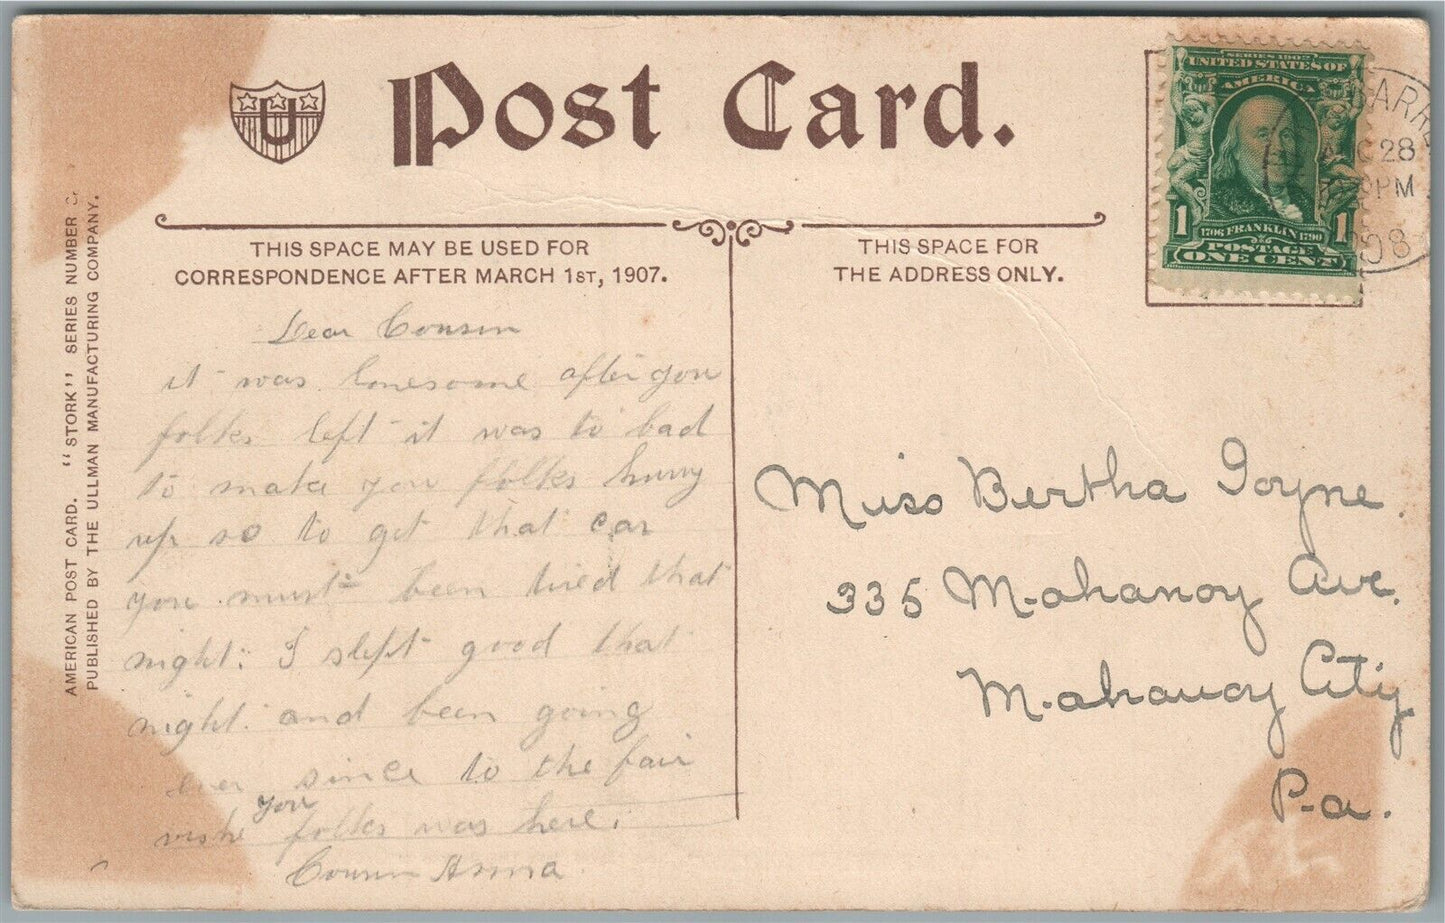 Post Card.
U
THIS SPACE MAY BE USED FOR
CORRESPONDENCE AFTER MARCH 1ST, 1907.
THIS SPACE FOR
THE ADDRESS ONLY.
SERIES 1902
UNITED STATES OF
AMERICA
1 1
1706 FRANKLIN 1790
POSTAGE
ONE CENT
BARRE
28
PM
08
AMERICAN POST CARD. "STORK" SERIES NUMBER
PUBLISHED BY THE ULLMAN MANUFACTURING COMPANY.
Dear Cousin
it was lonesome after you
folks left it was to bad
to make you folks hurry
up so to get that car
you must been tired that
night. I slept good that
night. and been going
ever since to the fair
wishe you folks was here.
Cousin Anna
Miss Bertha Goyne.
335 Mahanoy Ave.
Mahanoy City
Pa.